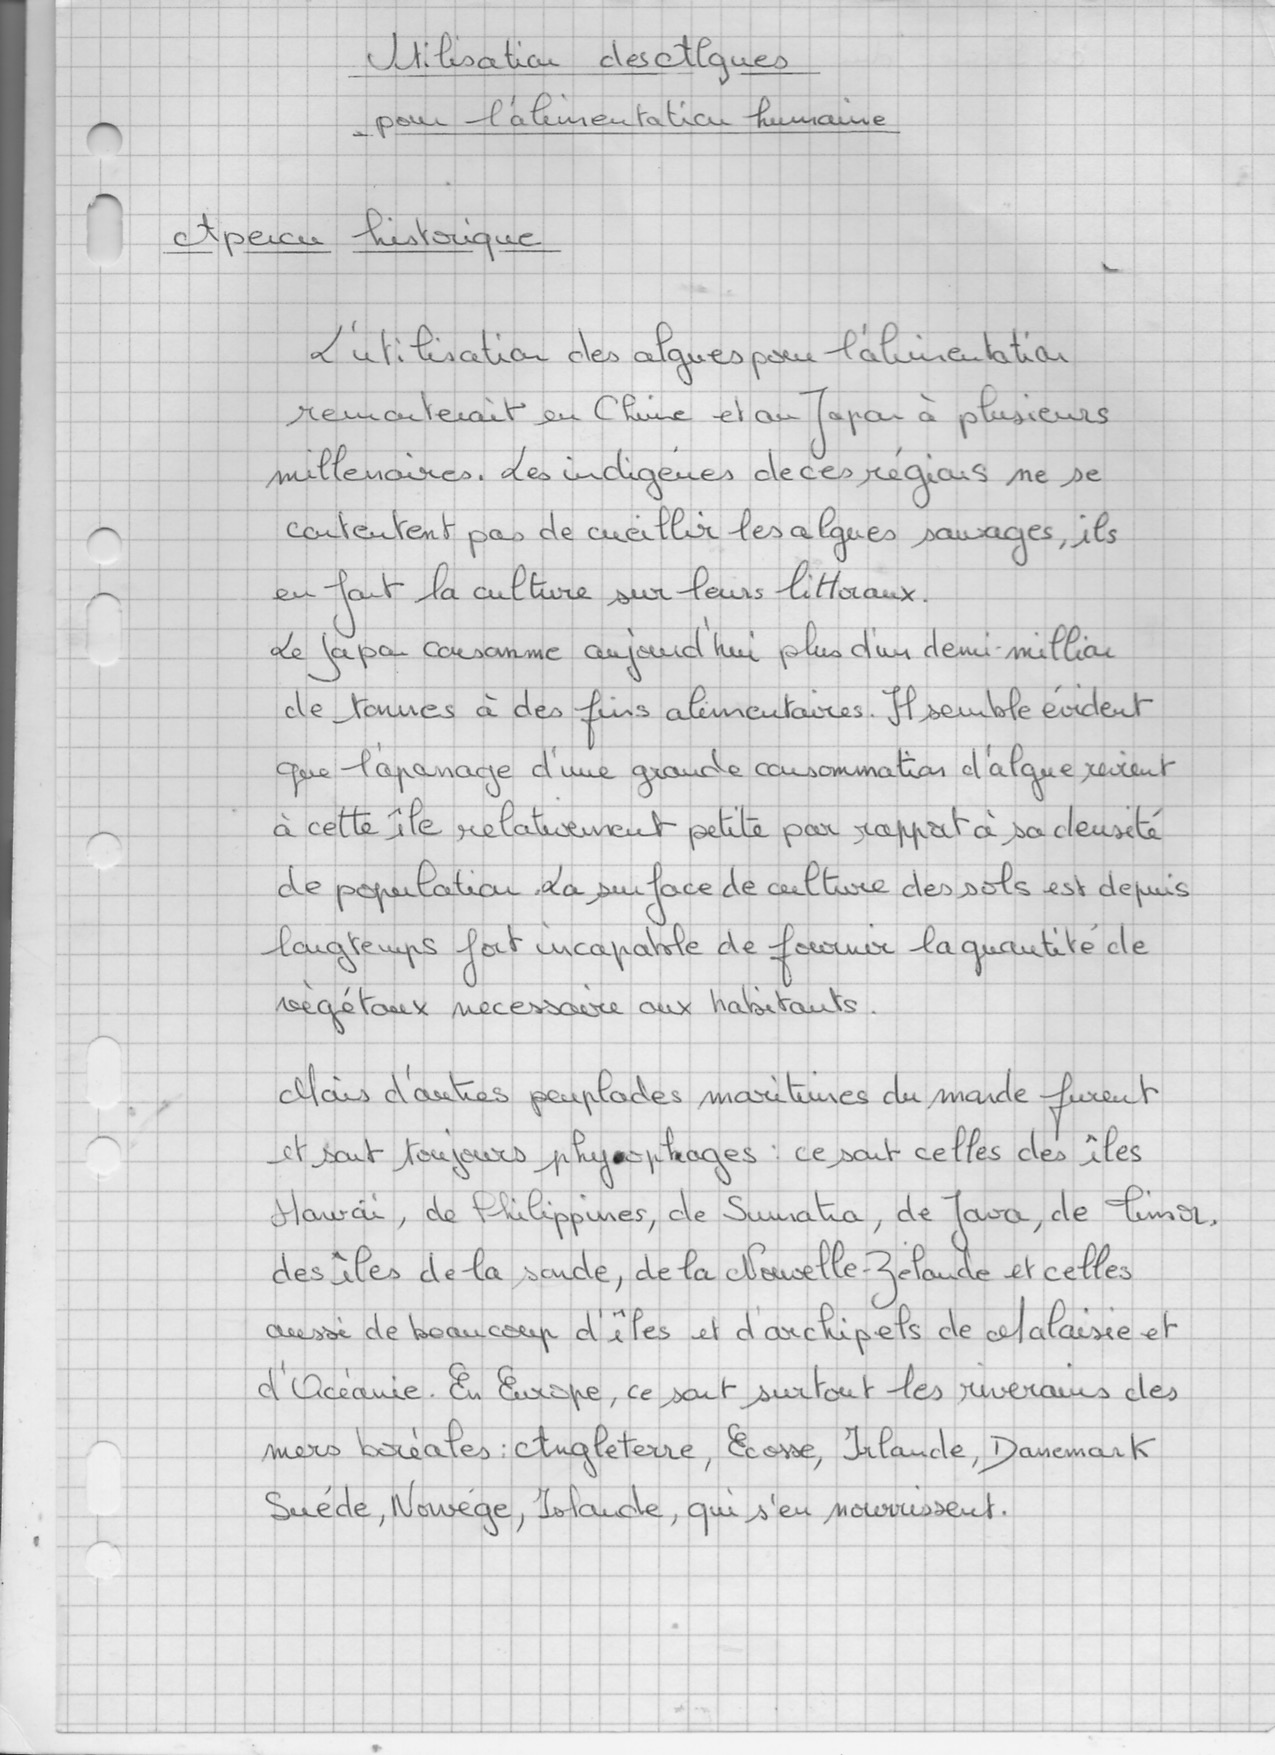 Utilisation des Algues
pour l'alimentation humaine
Apercu historique
L'utilisation des algues pour l'alimentation
remonterait en Chine et au Japon à plusieurs
millenaires. Les indigénes de ces régions ne se
contentent pas de cueillir les algues sauvages, ils
en font la culture sur leurs littoraux.
Le Japon consomme aujourd'hui plus d'un demi-million
de tonnes à des fins alimentaires. Il semble évident
que l'apanage d'une grande consommation d'algue revient
à cette île relativement petite par rapport à sa densité
de population. La surface de culture des sols est depuis
longtemps fort incapable de fournir la quantité de
végétaux necessaire aux habitants.
Mais d'autres peuplades maritimes du monde furent
et sont toujours phycophages : ce sont celles des îles
Hawaï, de Philippines, de Sumatra, de Java, de Timor,
des îles de la sonde, de la Nouvelle-Zélande et celles
aussi de beaucoup d'îles et d'archipels de Malaisie et
d'Océanie. En Europe, ce sont surtout les riverains des
mers boréales : Angleterre, Ecosse, Irlande, Danemark
Suéde, Norvége, Islande, qui s'en nourrissent.